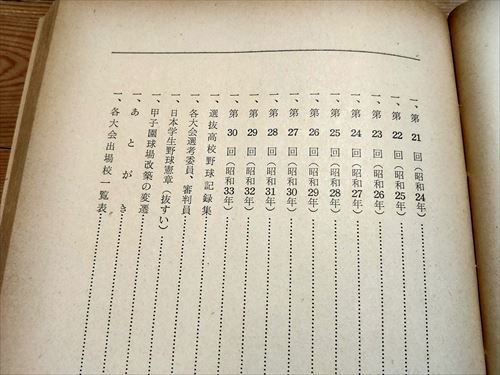 一、第 21 回(昭和24年)………………
一、第 22 回(昭和25年)………………
一、第 23 回(昭和26年)………………
一、第 24 回(昭和27年)………………
一、第 25 回(昭和28年)………………
一、第 26 回(昭和29年)………………
一、第 27 回(昭和30年)………………
一、第 28 回(昭和31年)………………
一、第 29 回(昭和32年)………………
一、第 30 回(昭和33年)………………
一、選抜高校野球記録集………………
一、各大会選考委員、審判員………………
一、日本学生野球憲章(抜すい)………………
一、甲子園球場改築の変遷………………
一、あとがき………………
一、各大会出場校一覧表………………